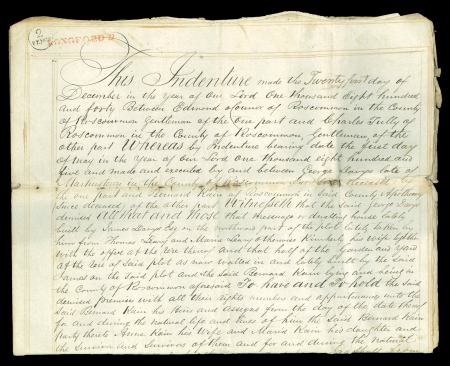 2
PENCE
LONGFORD
This Indenture made the Twenty first day of
December in the Year of our Lord One thousand Eight hundred
and forty Between Edmond oConnor of Roscommon in the County
of Roscommon Gentleman of the One part and Charles Tully of
Roscommon in the County of Roscommon, Gentleman of the
other part Whereas by Indenture bearing date the first day
of May in the Year of our Lord One thousand Eight hundred and
five and made and executed by and between George late of
in the County of Roscommon
the one part and Bernard Kain of Roscommon in Said County
Since deceased of the other part Witnesseth that the Said George
demised All that and those that Messuage or dwelling house lately
built by James on the northwest part of the plott lately taken by
him from Thomas and Maria otherwise his Wife together
with the office at the rere thereof and that half of the Garden and Yard
at the rere of Said plott as now walled in and lately built by the Said
James on the Said plott and the Said Bernard Kain lying and being in
the County of Roscommon aforesaid To have and To hold the Said
demised premises with all their rights members and appurtenances unto the
Said Bernard Kain his Heirs and assigns from the day of the date thereof
for and during the natural life and lives of him the Said Bernard Kain
party thereto Anne Kain his Wife and Maria Kain his daughter and
the Survivor and Survivors of them and for and during the natural